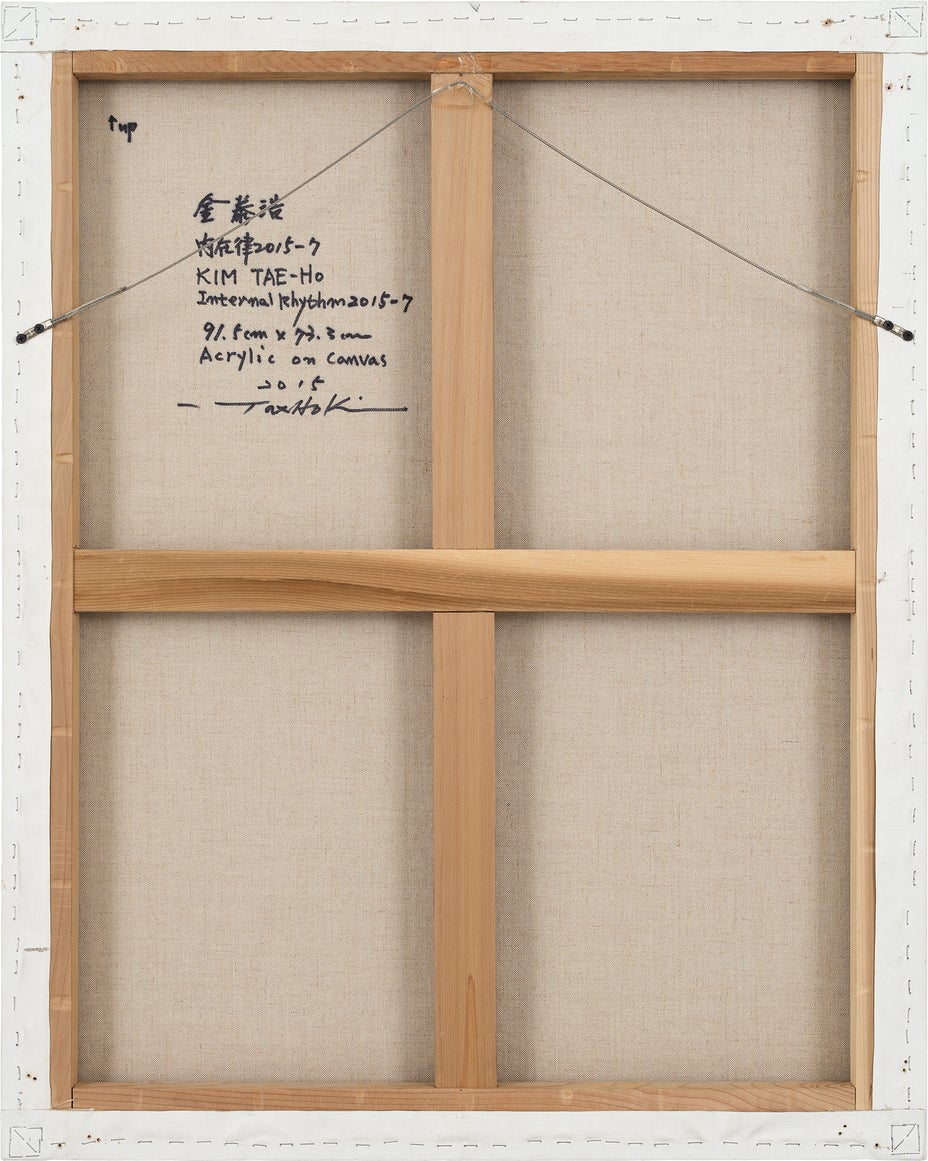 ↑up
金泰浩
內在律2015-7
KIM TAE-HO
Internal Rhythm2015-7
91.5cm x 73.3cm
Acrylic on Canvas
2015
TaeHo Kim